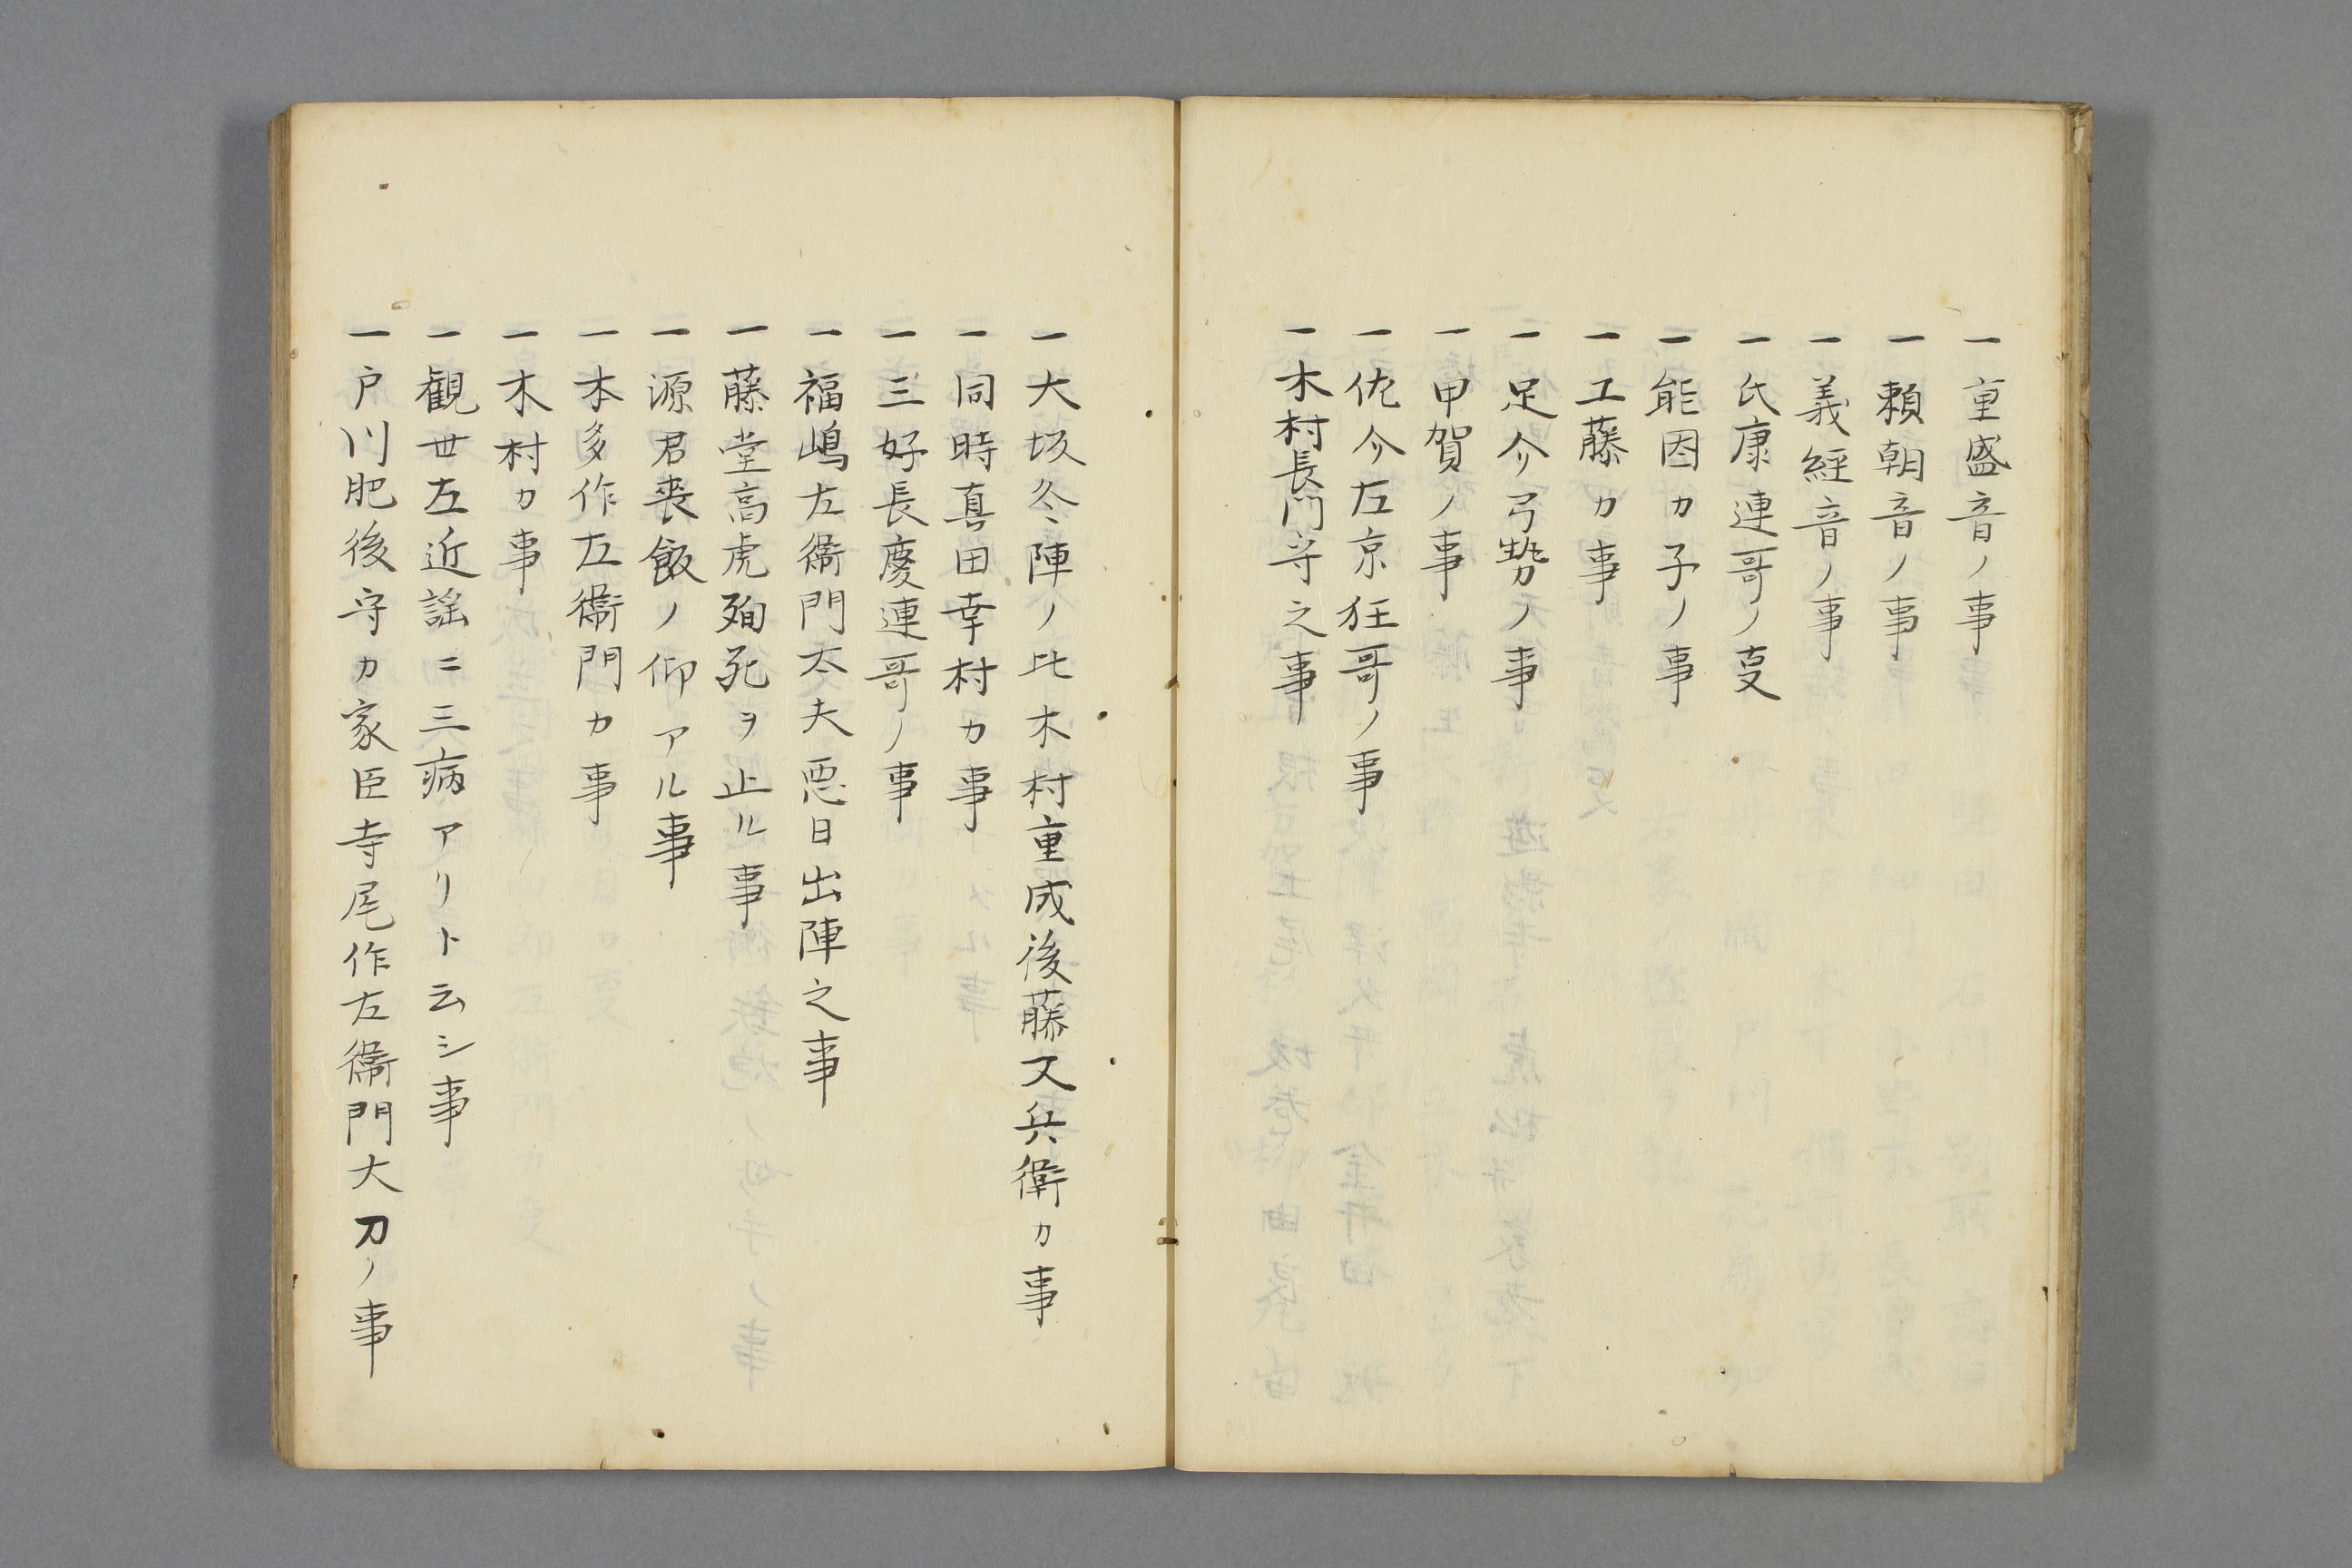 一重盛音ノ事
一頼朝音ノ事
一義經音ノ事
一氏康連哥ノ叓
一能因カ子ノ事
一工藤カ事
一足介弓勢ノ事
一甲賀ノ事
一佐介左京狂哥ノ事
一木村長門守之事
一大坂冬陣ノ比木村重成後藤又兵衛カ事
一同時真田幸村カ事
一三好長慶連哥ノ事
一福嶋左衞門太夫悪日出陣之事
一藤堂高虎殉死ヲ止ル事
一源君喪飯ノ仰アル事
一本多作左衞門カ事
一木村カ事
一観世左近謡ニ三病アリト云シ事
一戸川肥後守カ家臣寺尾作左衞門大刀ノ事